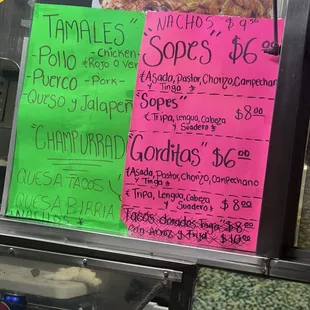 "TAMALES"
-Pollo -Chicken-
*Rojo o Ver
-Puerco -Pork-
-Queso y Jalapeñ
"CHAMPURRAD
QUESA TACOS
QUESA BIRRIA
NACHOS
"NACHOS $9.50
"Sopes" $6.00
*Asada, Pastor, Chorizo, Campechan
y Tinga*
"Sopes"
*Tripa, Lengua, Cabeza $8.00
y Suadero*
"Gorditas" $6.00
*Asada, Pastor, Chorizo, Campechano
y Tinga*
*Tripa, Lengua, Cabeza
y Suadero* $8.00
Tacos dorados Tinga $8.00
con Arroz y Frijol $10.00